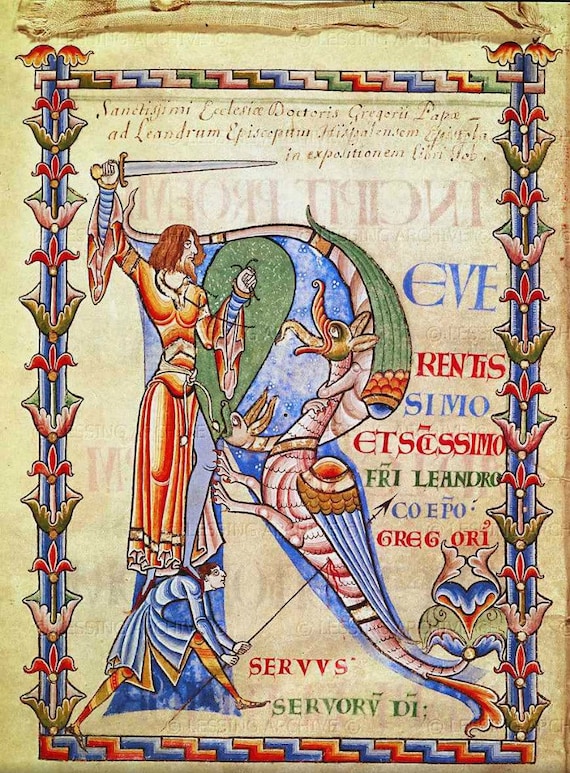 Sanctissimi Ecclesiæ Doctoris Gregorii Papæ
ad Leandrum Episcopum Hispalensem Epistola
in expositionem libri Iob.
R EVE
RENTIS
SIMO
ET SC̄ISSIMO
FR̄I LEANDRO
COEP̄O:
GREGORI'
SERVVS
SERVORV̄ DĪ:
© LESSING ARCHIVE ©